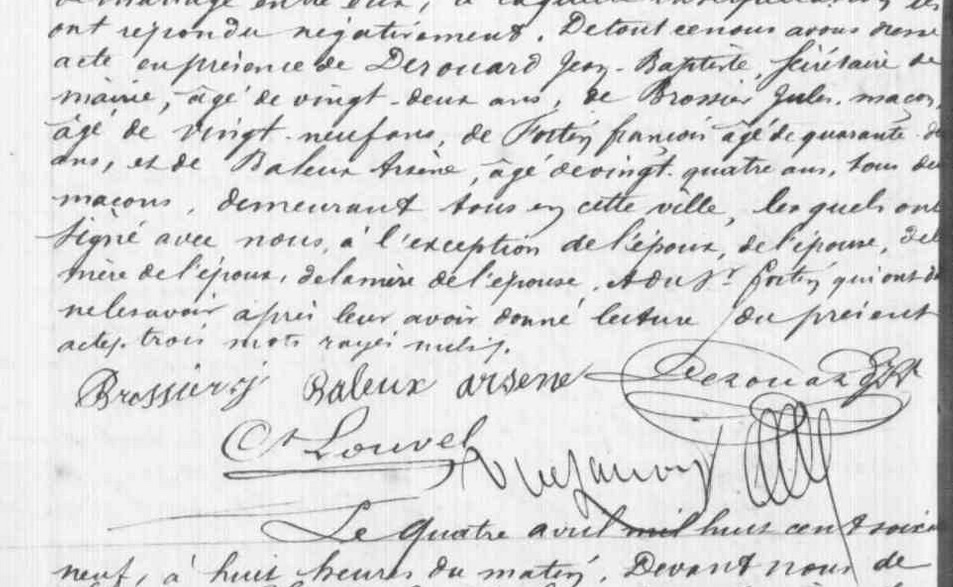 de mariage entre eux, à laquelle interpellation ils
ont répondu négativement. De tout ce nous avons dressé
acte en présence de Derouard Jean-Baptiste, sécrétaire de
mairie, âgé de vingt-deux ans, de Brossier Jules, maçon,
âgé de vingt-neuf ans, de Fortin françois âgé de quarante
ans, et de Baleux Arsène, âgé de vingt-quatre ans, tous
maçons, demeurant tous en cette ville, lesquels ont
signé avec nous, à l'exception de l'époux, de l'épouse, de la
mère de l'époux, de la mère de l'épouse, & du Sr. fortin qui ont dit
ne le savoir après leur avoir donné lecture du présent
acte, trois mots rayés nuls.
Brossier j Baleux arsene Derouard JBt
Ct Louvel
Le quatre avril mil huit cent soixante
neuf, à huit heures du matin, Devant nous